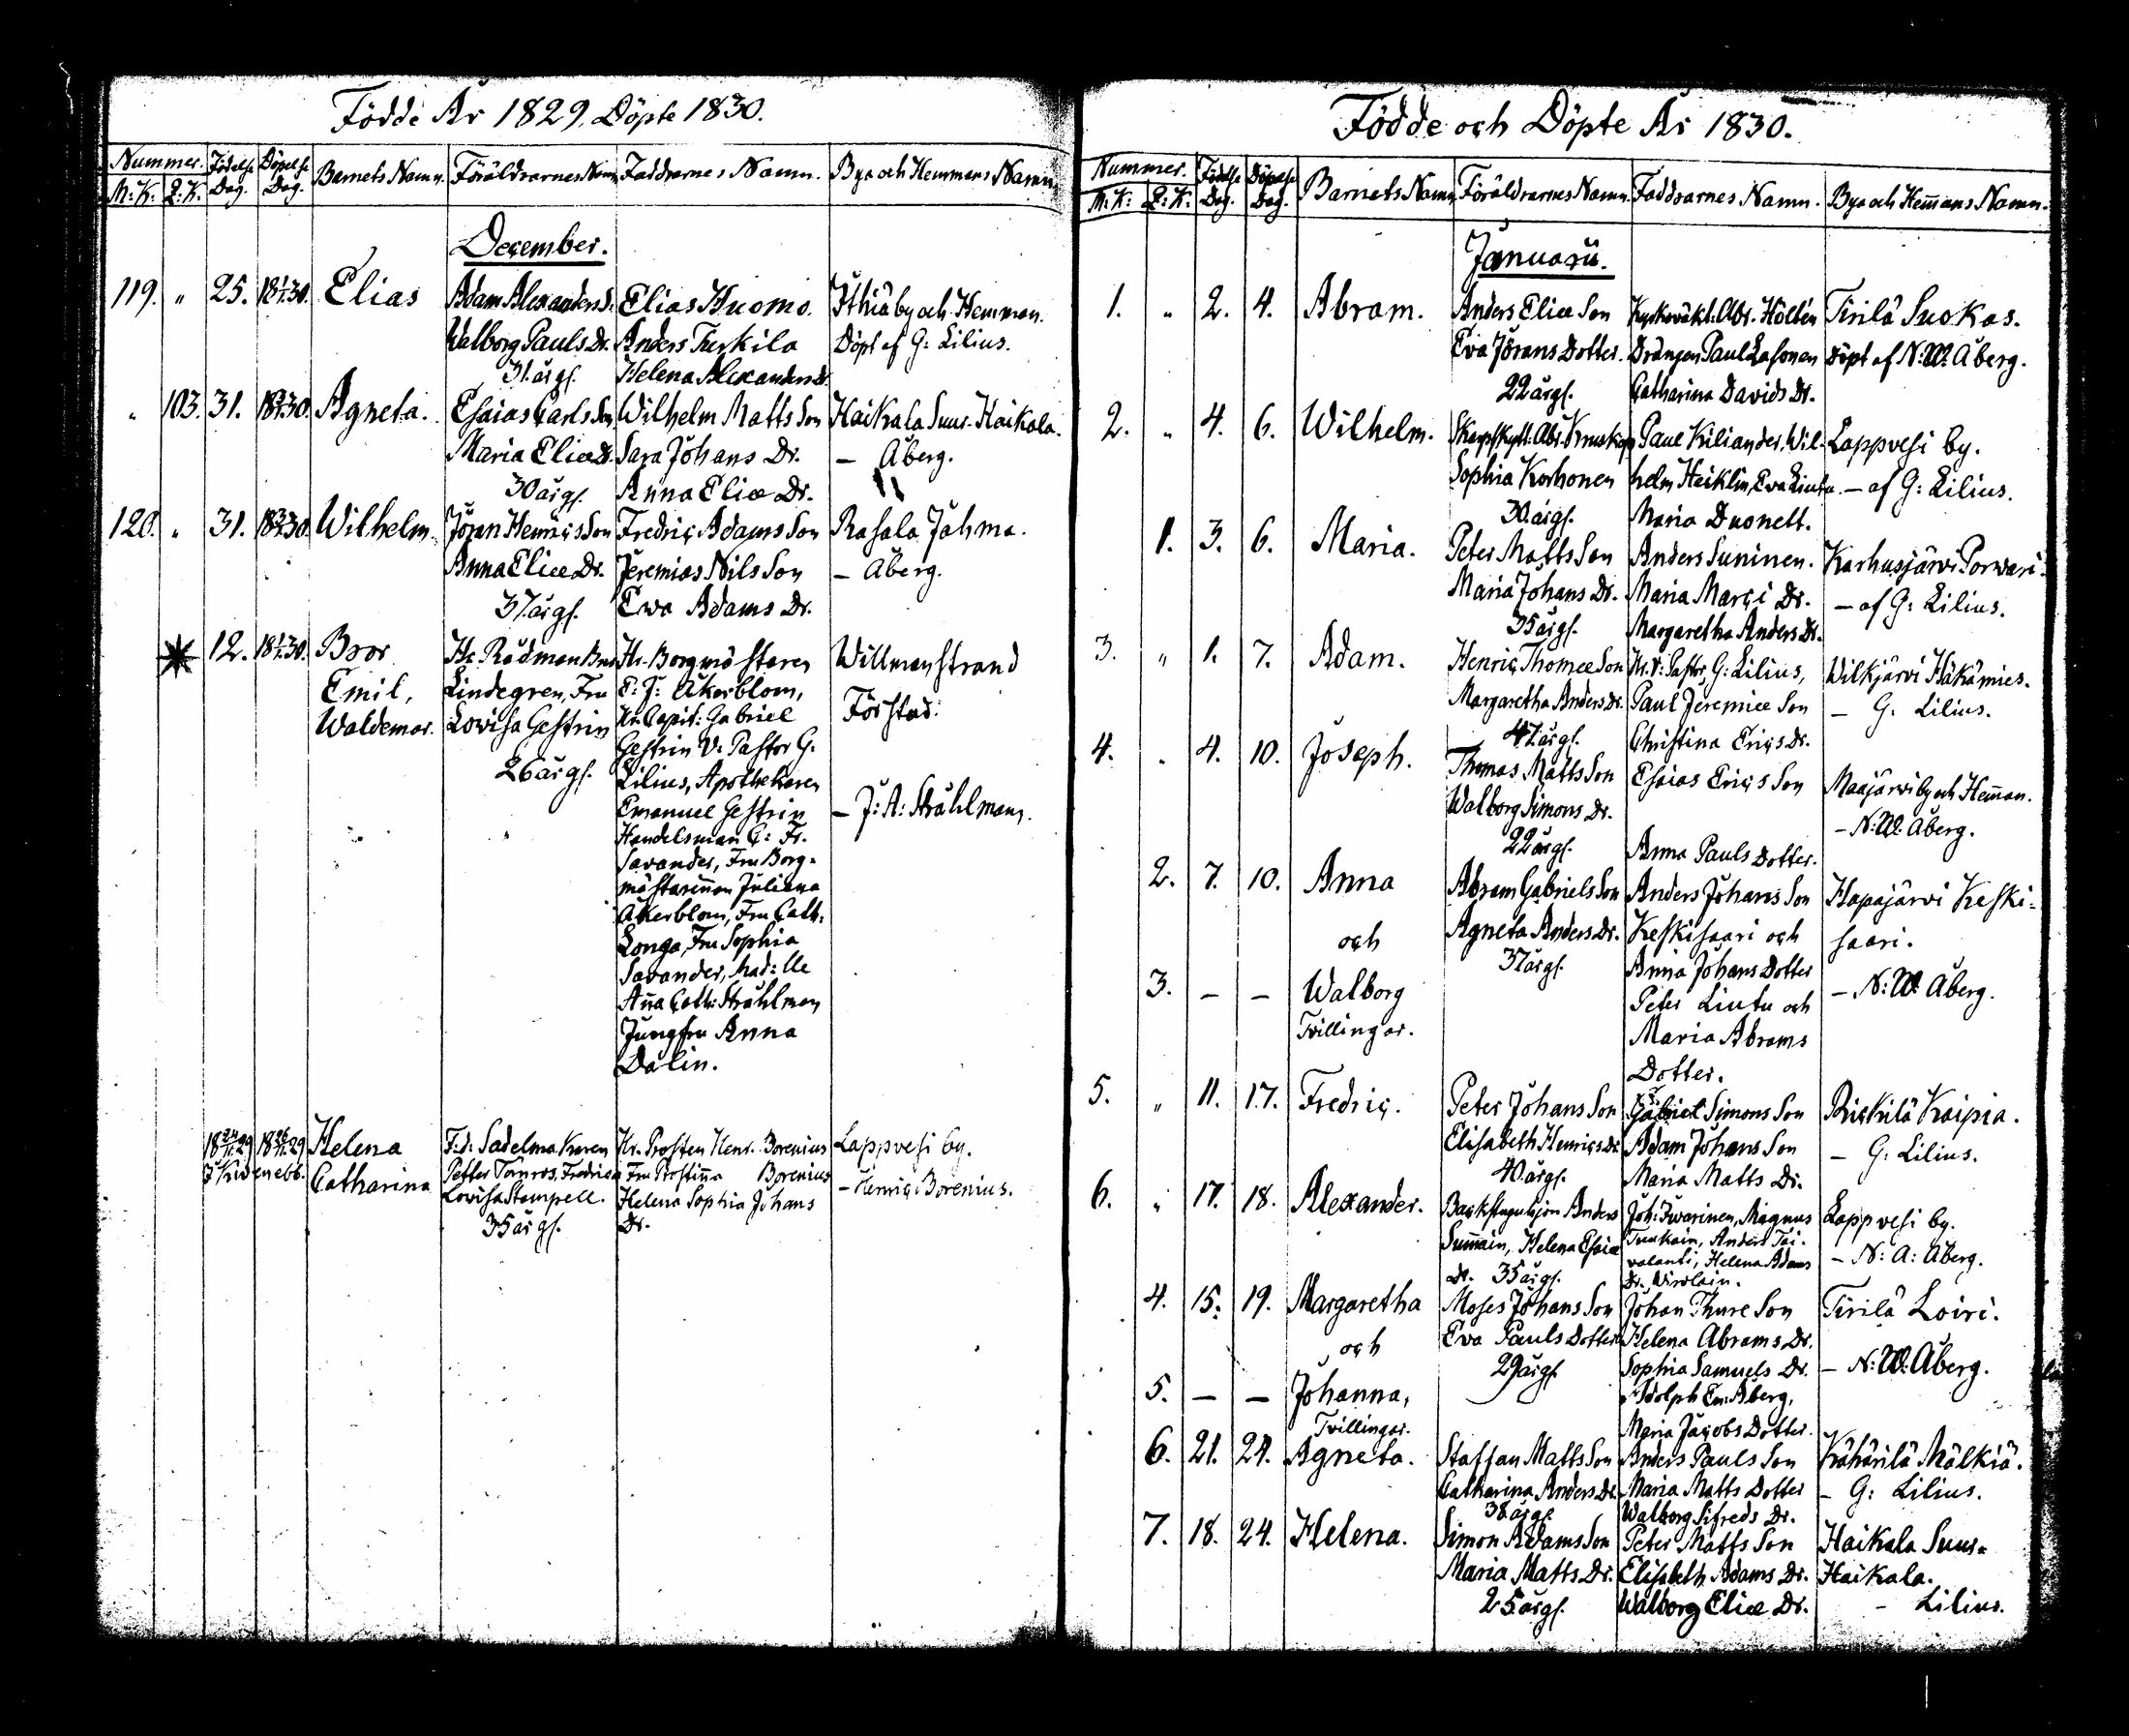 Födde År 1829, Döpte 1830.
Nummer. Födelse Döpelse Barnets Namn. Föräldrarnes Namn Faddrarnes Namn. Bya och Hemmans Namn.
M:K: Q:K. Dag. Dag.
December.
119. " 25. 18 1/1 30. Elias Adam Alexanders S. Elias Huomo. Ithiä by och Hemman.
Walborg Pauls Dr. Anders Turkila Döpt af G: Lilius.
31. årgs. Helena Alexanders Dr.
" 103. 31. 30. Agneta. Esaias Carls Son Wilhelm Matts Son Haikala Suur-Haikala.
Maria Eliæ Dr. Sara Johans Dr. — Åberg.
30 årgs. Anna Eliæ Dr.
120. " 31. 30. Wilhelm. Jöran Henrics Son Fredric Adams Son Rasala Jahma.
Anna Eliæ Dr. Jeremias Nils Son — Åberg.
37. årgs. Ewa Adams Dr.
12. 18 1/1 30. Bror Hr Rådman Hr. Borgmästaren Willmanstrand
Emil, Lindegren, Fru E: J: Åkerblom, Förstad.
Waldemar. Lovisa Gestrin Hr. Capit: Gabriel
26 årgs. Gestrin V: Pastor G.
Lilius, Apothekaren
Emanuel Gestrin — J: A: Stråhlman.
Handelsman C: Fr.
Savander, Fru Borg-
mästarinnan Juliana
Åkerblom, Fru Cath:
Longa, Fru Sophia
Savander, Mad:lle
Aña Cath: Stråhlman
Jungfru Anna
Dalin.
18 24/11 29 18 26/11 29 Helena F.d. Sadelmakaren Hr. Prosten Henr. Borenius Lappvesi by.
Catharina Petter Törnros, Fredrica Fru Prostiña Borenius — Henric Borenius.
Lovisa Stampell. Helena Sophia Johans
35 årgs. Dr.
Födde och Döpte År 1830.
Nummer. Födelse Döpelse Barnets Namn Föräldrarnes Namn. Faddrarnes Namn. Bya och Hem̃ans Namn.
M:K: Q:K: Dag. Dag.
Januarii.
1. " 2. 4. Abram. Anders Eliæ Son Kyrkovakt: Abr. Holtén Tirilä Suokas.
Eva Jörans Dotter. Drängen Paul Lasonen Döpt af N:W. Åberg.
22 årgs. Catharina Davids Dr.
2. " 4. 6. Wilhelm. Skarpskytt: Abr. Kruskop Paul Kiliander, Wil- Lappvesi by.
Sophia Korhonen helm Heiklin, Eva Liutu. — af G: Lilius.
30. årgs. Maria Duonett.
1. 3. 6. Maria. Peter Matts Son Anders Suninen. Karhusjärvi Porwari.
Maria Johans Dr. Maria Marci Dr. — af G: Lilius.
35 årgs. Margaretha Anders Dr.
3. " 1. 7. Adam. Henric Thomæ Son Hr. V: Pastor, G: Lilius, Wilkjärvi Häkämies.
Margaretha Anders Dr. Paul Jeremiæ Son — G. Lilius.
47 årgs. Christina Erics Dr.
4. " 4. 10. Joseph. Thomas Matts Son Esaias Erics Son Maajärvi by och Hem̃an.
Walborg Simons Dr. — N:W. Åberg.
22 årgs. Anna Pauls Dotter.
2. 7. 10. Anna Abram Gabriels Son Anders Johans Son Hapajärvi Keski-
och Agneta Anders Dr. Keskisaari och saari.
37 årgs. Anna Johans Dotter
3. — — Walborg Peter Liutu och — N:W. Åberg.
Tvillingar. Maria Abrams
Dotter.
5. " 11. 17. Fredric. Peter Johans Son Gabriel Simons Son Rickilä Kaipia.
Elisabeth Henrics Dr Adam Johans Son — G: Lilius.
40 årgs. Maria Matts Dr.
6. " 17. 18. Alexander. Backstuguhjon Anders Joh: Iwarinen, Magnus Lappvesi by.
Sum̃ain, Helena Esaiæ Tuukain, Anders Tai- — N: A: Åberg.
Dr. 35 årgs. valanti, Helena Adams
Dr. Wirolain.
4. 15. 19. Margaretha Moses Johans Son Johan Thure Son Tirilä Loiri.
och Eva Pauls Dotter Helena Abrams Dr.
29 årgs. Sophia Samuels Dr. — N:W. Åberg.
5. — — Johanna, Adolph Em. Åberg,
Tvillingar. Maria Jacobs Dotter.
6. 21. 24. Agneta. Staffan Matts Son Anders Pauls Son Kähärilä Mälkiä.
Catharina Anders Dr. Maria Matts Dotter — G: Lilius.
38 årgs. Walborg Sifreds Dr.
7. 18. 24. Helena. Simon Adams Son Peter Matts Son Haikala Suur-
Maria Matts Dr. Elisabeth Adams Dr. Haikala.
25 årgs. Walborg Eliæ Dr. — Lilius.